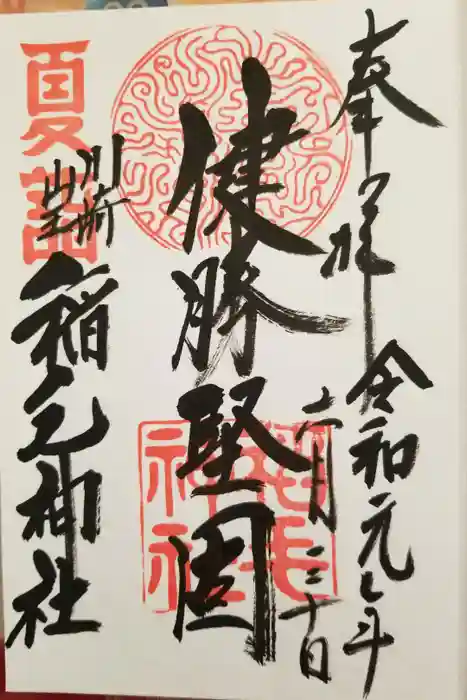 奉拝 令和元年
六月三十日
健勝堅固
川崎
山王
稲毛神社
夏詣
稲毛
神社